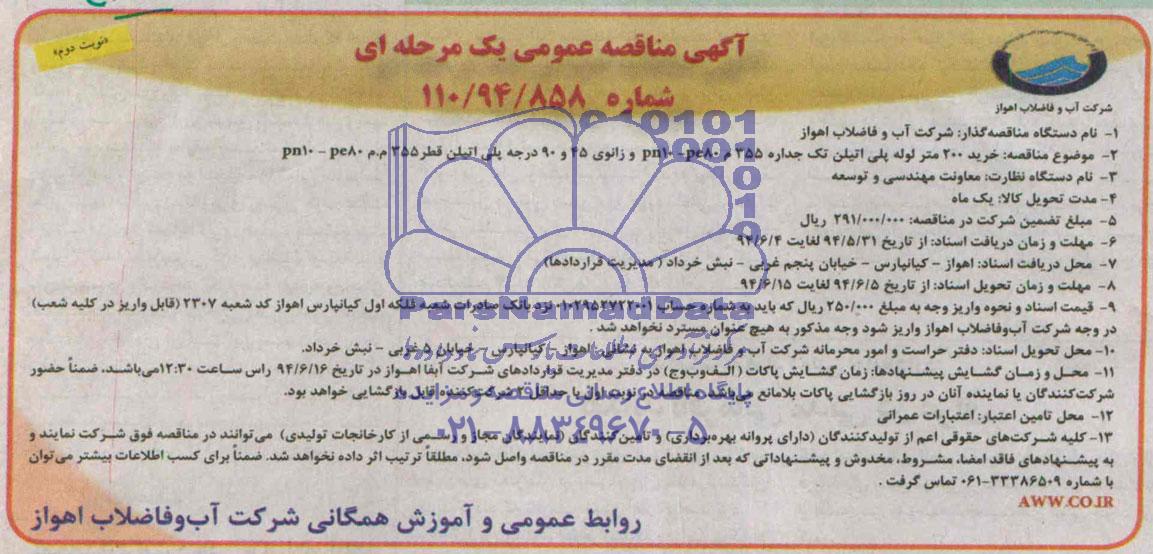 «نوبت دوم»
آگهی مناقصه عمومی یک مرحله ای
شماره ۱۱۰/۹۴/۸۵۸
شرکت آب و فاضلاب اهواز
۱- نام دستگاه مناقصه‌گذار: شرکت آب و فاضلاب اهواز
۲- موضوع مناقصه: خرید ۲۰۰ متر لوله پلی اتیلن تک جداره ۳۵۵ م pn۱۰ -pe۸۰ و زانوی ۴۵ و ۹۰ درجه پلی اتیلن قطر ۳۵۵ م.م pn۱۰ - pe۸۰
۳- نام دستگاه نظارت: معاونت مهندسی و توسعه
۴- مدت تحویل کالا: یک ماه
۵- مبلغ تضمین شرکت در مناقصه: ۲۹۱/۰۰۰/۰۰۰ ریال
۶- مهلت و زمان دریافت اسناد: از تاریخ ۹۴/۵/۳۱ لغایت ۹۴/۶/۴
۷- محل دریافت اسناد: اهواز - کیانپارس - خیابان پنجم غربی - نبش خرداد ( مدیریت قراردادها)
۸- مهلت و زمان تحویل اسناد: از تاریخ ۹۴/۶/۵ لغایت ۹۴/۶/۱۵
۹- قیمت اسناد و نحوه واریز وجه به مبلغ ۲۵۰/۰۰۰ ریال که باید به شماره حساب ۰۱۰۲۹۵۲۷۲۲۰۰۱ نزد بانک صادرات شعبه فلکه اول کیانپارس اهواز کد شعبه ۲۳۰۷ (قابل واریز در کلیه شعب)
در وجه شرکت آب‌وفاضلاب اهواز واریز شود وجه مذکور به هیچ عنوان مسترد نخواهد شد .
۱۰- محل تحویل اسناد: دفتر حراست و امور محرمانه شرکت آب و فاضلاب اهواز به نشانی: اهواز - کیانپارس - خیابان ۵ غربی - نبش خرداد.
۱۱- محل و زمان گشایش پیشنهادها: زمان گشایش پاکات ( الف‌وب‌وج) در دفتر مدیریت قراردادهای شرکت آبفا اهواز در تاریخ ۹۴/۶/۱۶ راس ساعت ۱۲:۳۰ می‌باشد. ضمناً حضور
شرکت‌کنندگان یا نماینده آنان در روز بازگشایی پاکات بلامانع می‌باشد. مناقصه در نوبت اول با حداقل ۳ شرکت‌کننده قابل بازگشایی خواهد بود.
۱۲- محل تامین اعتبار: اعتبارات عمرانی
۱۳- کلیه شرکت‌های حقوقی اعم از تولیدکنندگان (دارای پروانه بهره‌برداری) و تأمین‌کنندگان (نمایندگان مجاز و رسمی از کارخانجات تولیدی) می‌توانند در مناقصه فوق شرکت نمایند و
به پیشنهادهای فاقد امضا، مشروط، مخدوش و پیشنهاداتی که بعد از انقضای مدت مقرر در مناقصه واصل شود، مطلقاً ترتیب اثر داده نخواهد شد. ضمناً برای کسب اطلاعات بیشتر می‌توان
با شماره ۳۳۳۸۶۵۰۹-۰۶۱ تماس گرفت .
AWW.CO.IR
روابط عمومی و آموزش همگانی شرکت آب‌وفاضلاب اهواز
ParsNamadData
پایگاه اطلاع رسانی مناقصه و مزایده
۰۲۱-۸۸۳۴۹۶۷۰-۵